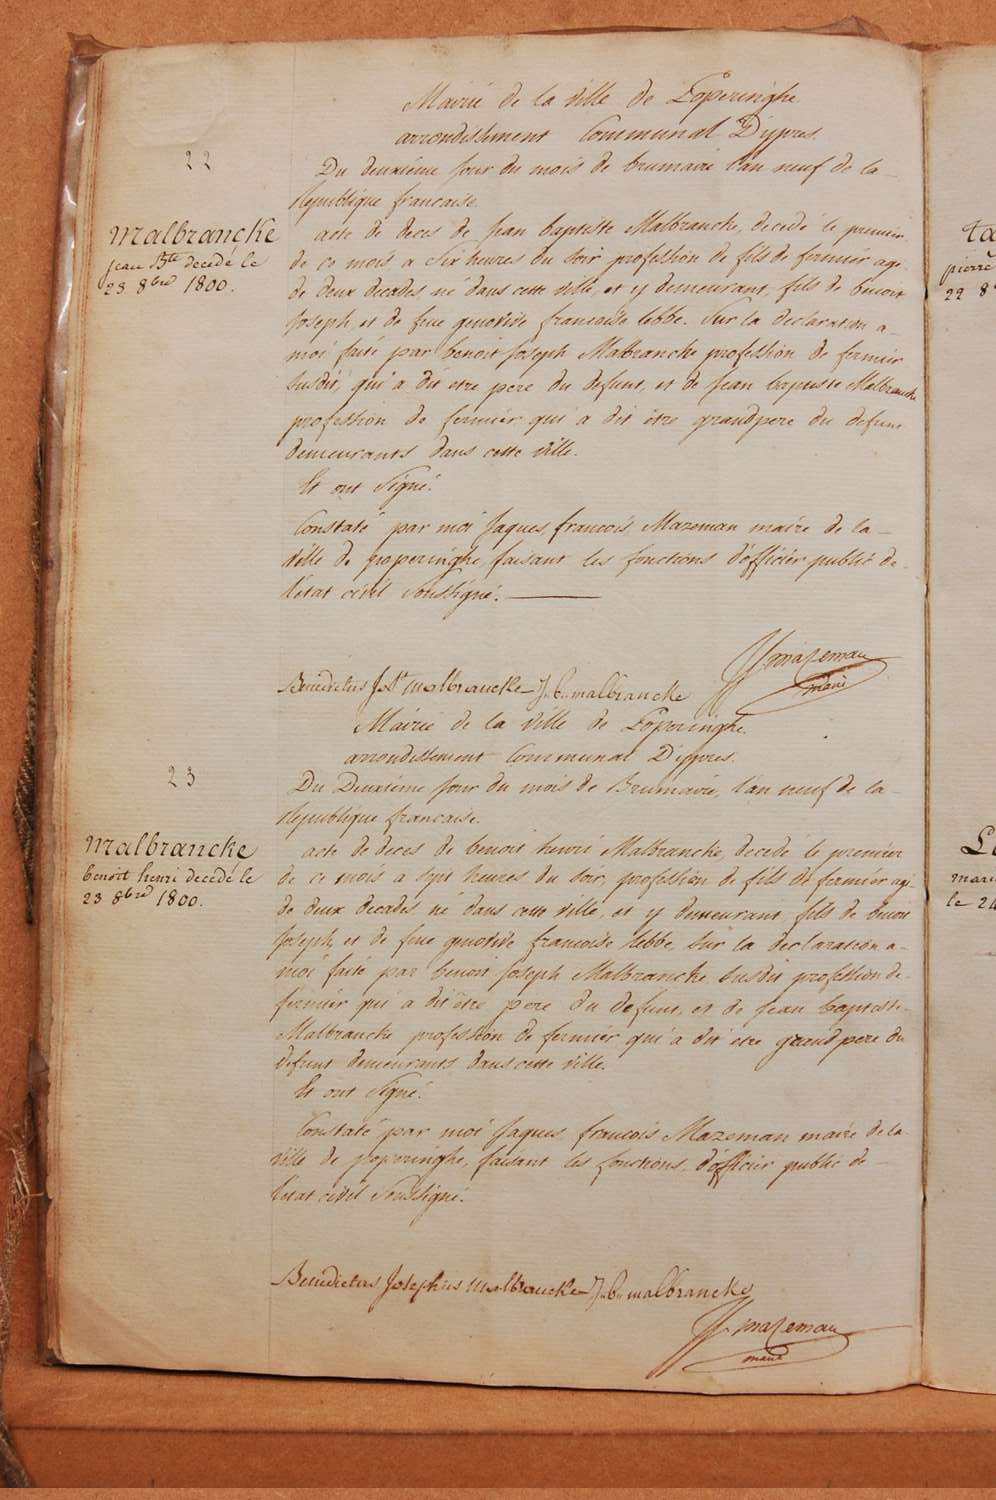 Mairie de la ville de Poperinghe
arrondissement Communal D'ypres.
22
Du deuxième jour du mois de brumaire l'an neuf de la
République francaise
Malbrancke
Jean Bte decedé le
23 8bre 1800.
acte de deces de Jean baptiste Malbrancke, decedé le premier
de ce mois a six heures du soir profession de fils de fermier agé
de deux decades né dans cette ville, et y demeurant, fils de benoit
Joseph, et de feue genovive francoise lebbe. Sur la declaration a
moi faite par benoit Joseph Malbrancke profession de fermier
susdit, qui a dit etre pere du defunt, et de Jean baptiste Malbrancke
profession de fermier qui a dit être grandpere du defunt
demeurants dans cette ville.
Et ont signé.
Constaté par moi Jaques francois Mazeman maire de la
ville de poperinghe, faisant les fonctions d'officier public de
l'état civil soussigné.
JJ mazeman
maire
Benedictus Jos. malbrancke J. b. malbrancke
Mairie de la ville de Poperinghe.
arrondissement Communal D'ypres.
23
Du Deuxième jour du mois de Brumaire, l'an neuf de la
République francaise.
Malbrancke
benoit henri decedé le
23 8bre 1800.
acte de deces de benoit henri Malbrancke, decedé le premier
de ce mois a sept heures du soir, profession de fils de fermier agé
de deux decades né dans cette ville, et y demeurant, fils de benoit
Joseph, et de feue genovive francoise lebbe, sur la declaration a
moi faite par benoit Joseph Malbrancke, susdit profession de
fermier qui a dit être pere du defunt, et de Jean baptiste
Malbrancke profession de fermier qui a dit etre grand pere du
defunt demeurants dans cette ville.
Et ont signé.
Constaté par moi Jaques francois Mazeman maire de la
ville de poperinghe, faisant les fonctions d'officier public de
l'état civil soussigné.
Benedictus Josephus malbrancke J. b. malbrancke
JJ mazeman
maire
pierre
22 8
mari
le 24